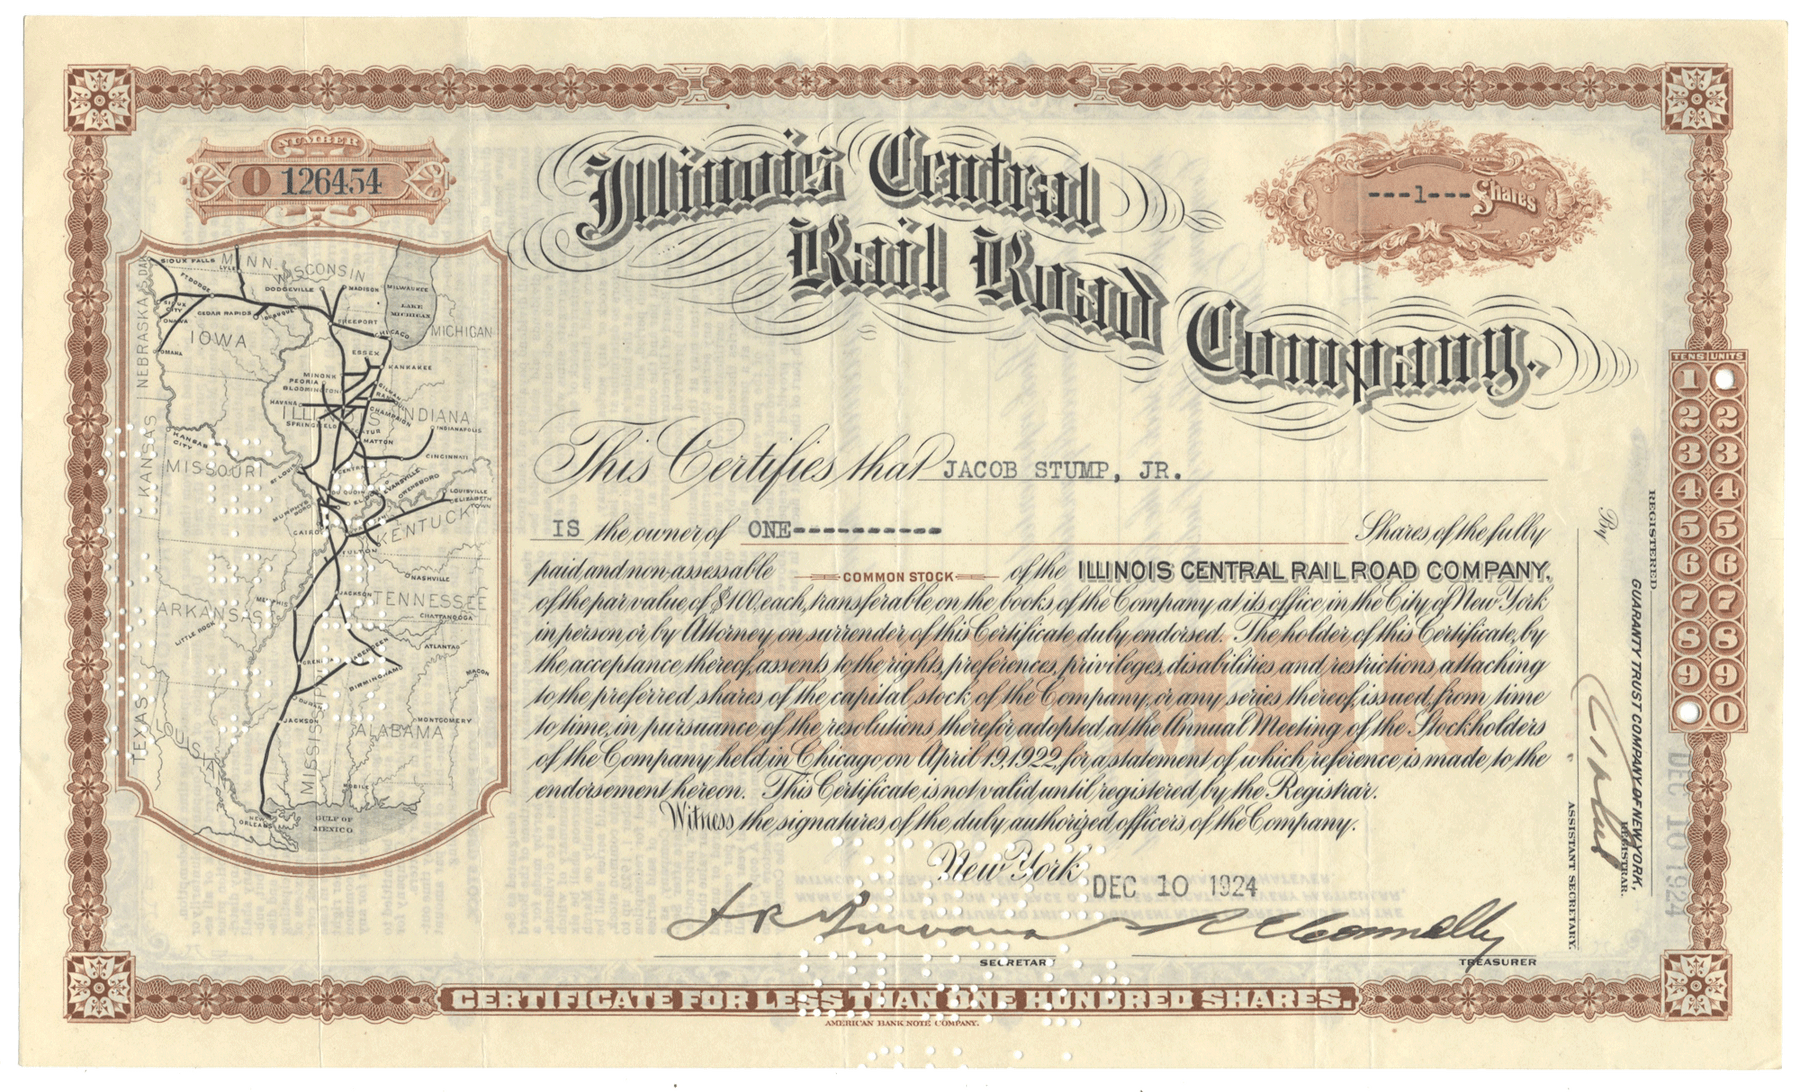 NUMBER
O 126454
Illinois Central
Rail Road
Company.
---1--- Shares
SIOUX FALLS
MINN.
LYLE
WISCONSIN
S. DAK.
FT. DODGE
DODGEVILLE
MADISON
MILWAUKEE
LAKE
MICHIGAN
SIOUX
CITY
ONAWA
CEDAR RAPIDS
DUBUQUE
FREEPORT
CHICAGO
MICHIGAN
NEBRASKA
IOWA
OMAHA
ESSEX
KANKAKEE
MINONK
PEORIA
BLOOMINGTON
GILMAN
RANTOUL
HAVANA
CHAMPAIGN
ILLINOIS
INDIANA
SPRINGFIELD
DECATUR
INDIANAPOLIS
MATTOON
KANSAS
CITY
KANSAS
MISSOURI
ST. LOUIS
CENTRALIA
CINCINNATI
EVANSVILLE
OWENSBORO
DU QUOIN
ELDORADO
LOUISVILLE
ELIZABETH
TOWN
MURPHYS
BORO
CAIRO
KENTUCKY
FULTON
NASHVILLE
MEMPHIS
JACKSON
TENNESSEE
ARKANSAS
CHATTANOOGA
LITTLE ROCK
ABERDEEN
ATLANTA
BIRMINGHAM
MACON
DURANT
JACKSON
MONTGOMERY
TEXAS
LOUISIANA
MISSISSIPPI
ALABAMA
MOBILE
NEW
ORLEANS
GULF OF
MEXICO
This Certifies that JACOB STUMP, JR.
IS the owner of ONE----------- Shares of the fully
paid and non-assessable COMMON STOCK of the ILLINOIS CENTRAL RAIL ROAD COMPANY,
of the par value of $100 each, transferable on the books of the Company at its office in the City of New York
in person or by Attorney on surrender of this Certificate duly endorsed. The holder of this Certificate, by
the acceptance thereof, assents to the rights, preferences, privileges, disabilities and restrictions attaching
to the preferred shares of the capital stock of the Company, or any series thereof, issued from time
to time, in pursuance of the resolutions therefor adopted at the Annual Meeting of the Stockholders
of the Company held in Chicago on April 19, 1922, for a statement of which reference is made to the
endorsement hereon. This Certificate is not valid until registered by the Registrar.
Witness the signatures of the duly authorized officers of the Company.
COMMON
New York DEC 10 1924
SECRETARY
R E Connolly
TREASURER
CERTIFICATE FOR LESS THAN ONE HUNDRED SHARES.
AMERICAN BANK NOTE COMPANY.
REGISTERED
GUARANTY TRUST COMPANY OF NEW YORK,
REGISTRAR.
By
ASSISTANT SECRETARY.
DEC 10 1924
TENS UNITS
1
2 2
3 3
4 4
5 5
6 6
7 7
8 8
9 9
0